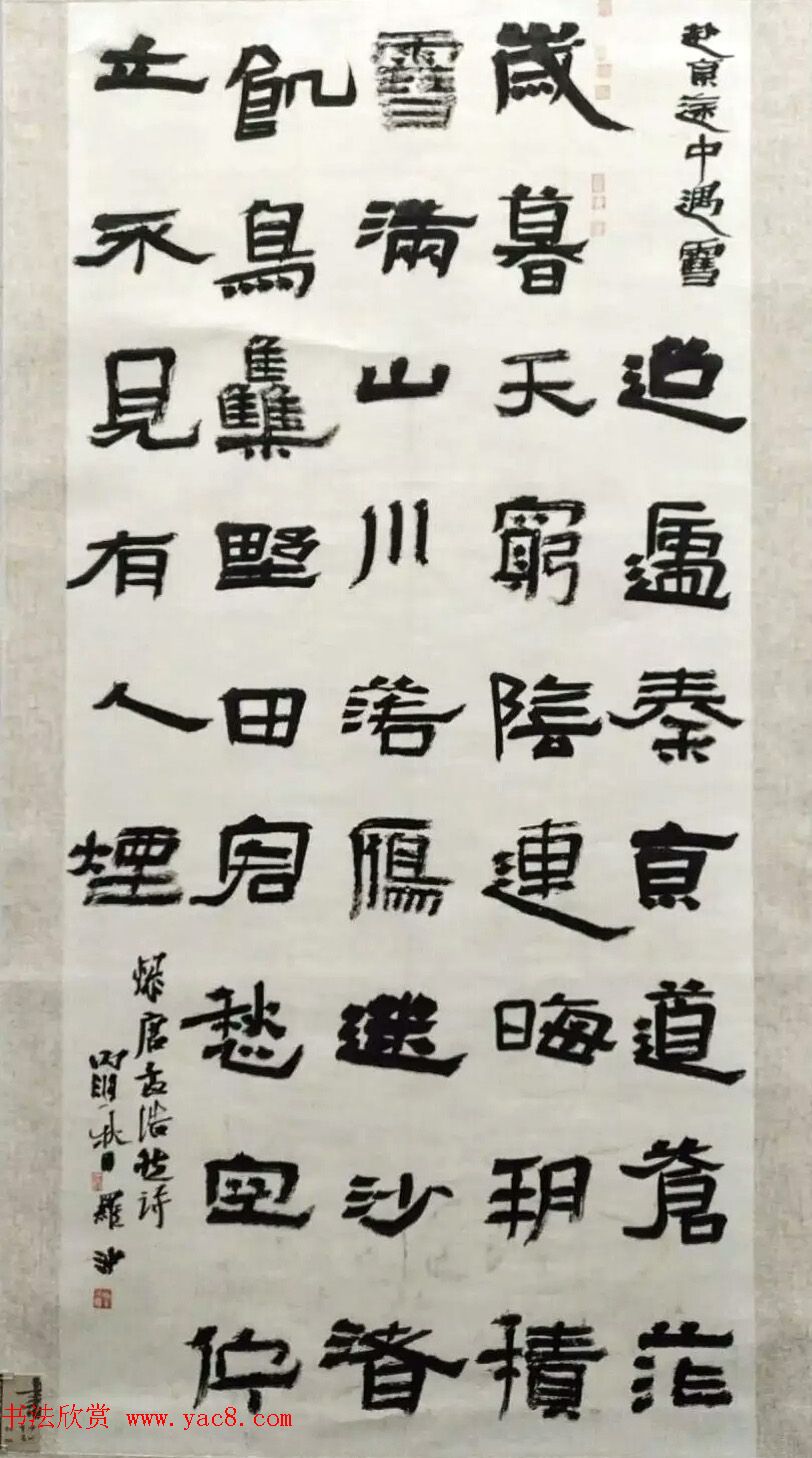 赴京途中遇雪
迢遞秦京道蒼茫
歲暮天窮陰連晦朔積
雪滿山川落鴈迷沙渚
飢鳥雧野田客愁空佇
立不見有人煙
錄唐孟浩然詩
秋日 羅
书法欣赏 www.yac8.com